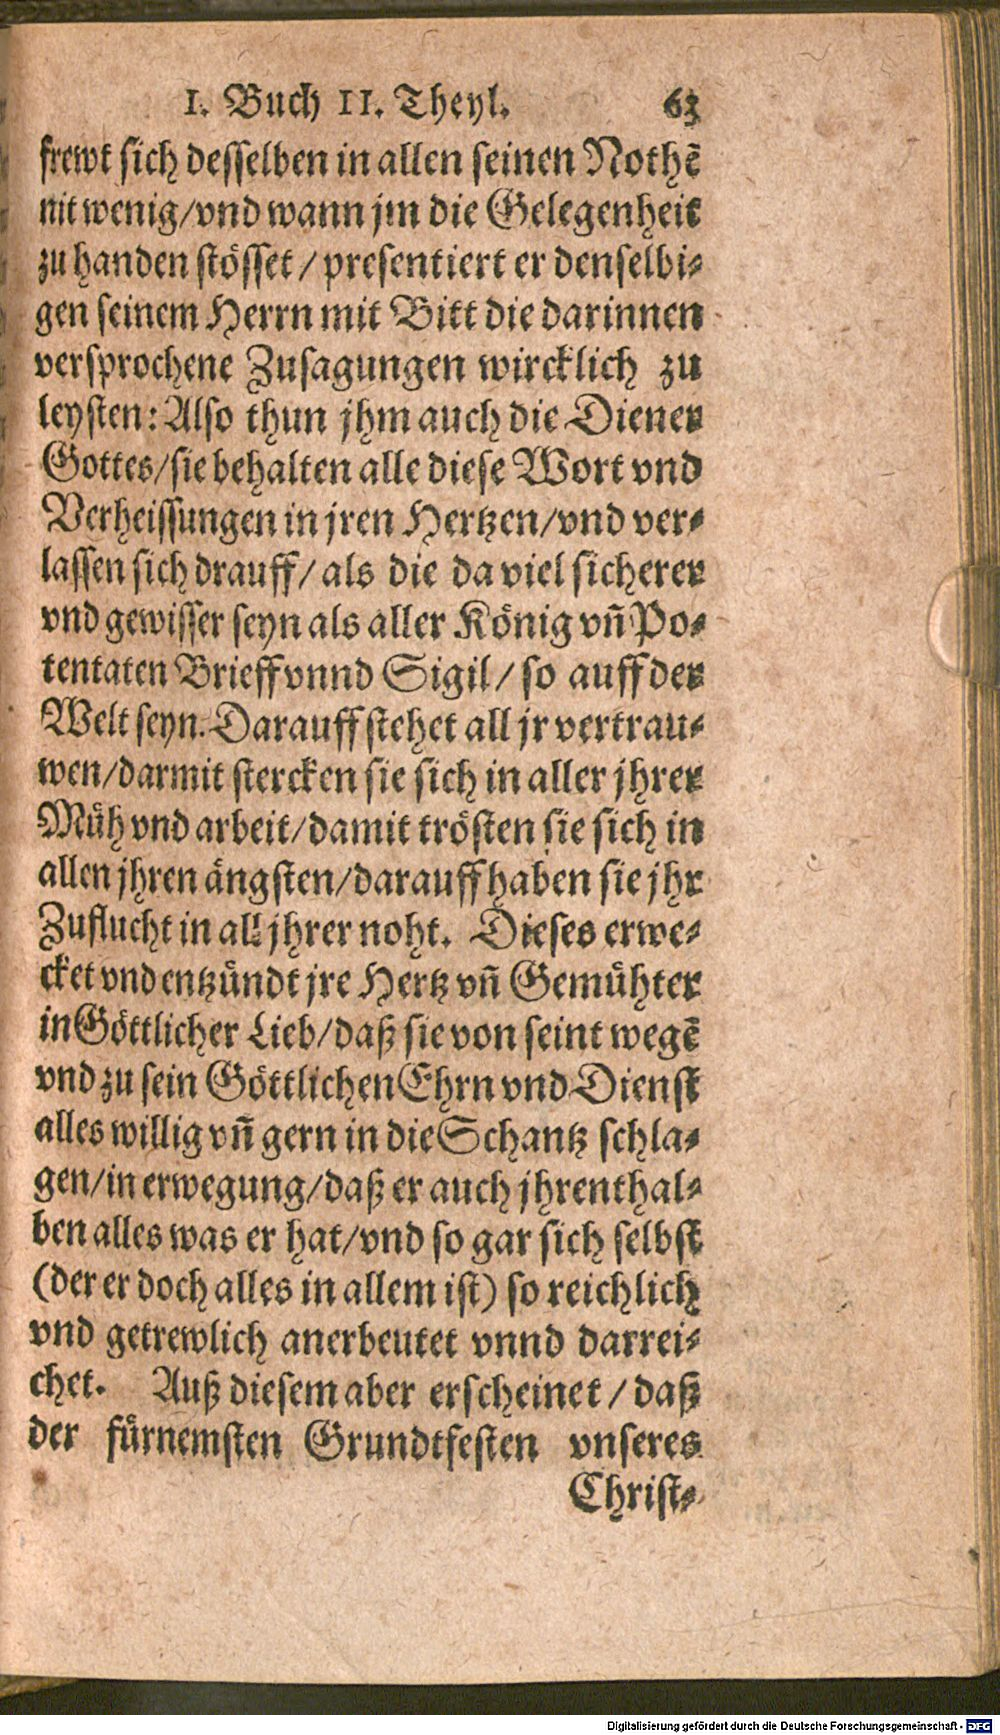 I. Buch II. Theyl. 63
frewt sich desselben in allen seinen Nothẽ
nit wenig/vnd wann jm die Gelegenheit
zu handen stösset/presentiert er denselbi⸗
gen seinem Herrn mit Bitt die darinnen
versprochene Zusagungen wircklich zu
leysten: Also thun jhm auch die Diener
Gottes/sie behalten alle diese Wort vnd
Verheissungen in jren Hertzen/vnd ver⸗
lassen sich drauff/als die da viel sicherer
vnd gewisser seyn als aller König vñ Po⸗
tentaten Brieff vnnd Sigil/so auff der
Welt seyn. Darauff stehet all jr vertrau⸗
wen/darmit stercken sie sich in aller jhrer
Müh vnd arbeit/damit trösten sie sich in
allen jhren ängsten/darauff haben sie jhr
Zuflucht in all jhrer noht. Dieses erwe⸗
cket vnd entzündt jre Hertz vñ Gemühter
in Göttlicher Lieb/daß sie von seint wegẽ
vnd zu sein Göttlichen Ehrn vnd Dienst
alles willig vñ gern in die Schantz schla⸗
gen/in erwegung/daß er auch jhrenthal⸗
ben alles was er hat/vnd so gar sich selbst
(der er doch alles in allem ist) so reichlich
vnd getrewlich anerbeutet vnnd darrei⸗
chet. Auß diesem aber erscheinet/daß
der fürnemsten Grundtfesten vnseres
Christ⸗
Digitalisierung gefördert durch die Deutsche Forschungsgemeinschaft - DFG